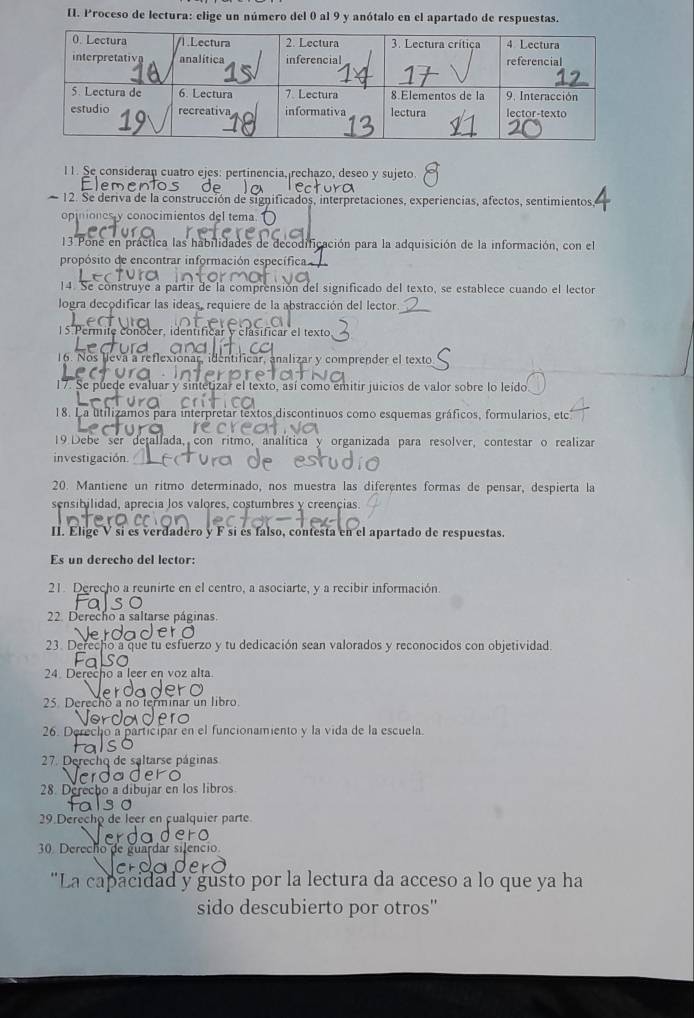 II. Proceso de lectura: elige un número del 0 al 9 y anótalo en el apartado de respuestas.
0. Lectura interpretativa 16
1.Lectura analítica 15
2. Lectura inferencial 14
3. Lectura crítica 17
4. Lectura referencial 12
5. Lectura de estudio 19
6. Lectura recreativa 18
7. Lectura informativa 13
8.Elementos de la lectura 11
9. Interacción lector-texto 20
11. Se consideran cuatro ejes: pertinencia, rechazo, deseo y sujeto. 8
Elementos de la lectura
12. Se deriva de la construcción de significados, interpretaciones, experiencias, afectos, sentimientos, 4
opiniones y conocimientos del tema.
Lectura referencial
13 Pone en práctica las habilidades de decodificación para la adquisición de la información, con el
propósito de encontrar información específica.
Lectura informativa
14. Se construye a partir de la comprensión del significado del texto, se establece cuando el lector
logra decodificar las ideas, requiere de la abstracción del lector. 2
Lectura inferencial
15.Permite conocer, identificar y clasificar el texto. 3
Lectura analítica
16. Nos lleva a reflexionar, identificar, analizar y comprender el texto. 5
Lectura interpretativa
17. Se puede evaluar y sintetizar el texto, así como emitir juicios de valor sobre lo leído.
Lectura crítica
18. La utilizamos para interpretar textos discontinuos como esquemas gráficos, formularios, etc.
Lectura recreativa
19.Debe ser detallada, con ritmo, analítica y organizada para resolver, contestar o realizar
investigación. Lectura de estudio
20. Mantiene un ritmo determinado, nos muestra las diferentes formas de pensar, despierta la
sensibilidad, aprecia los valores, costumbres y creencias.
Interaccion lector-texto
II. Elige V si es verdadero y F si es falso, contesta en el apartado de respuestas.
Es un derecho del lector:
21. Derecho a reunirte en el centro, a asociarte, y a recibir información.
Falso
22. Derecho a saltarse páginas.
Verdadero
23. Derecho a que tu esfuerzo y tu dedicación sean valorados y reconocidos con objetividad.
Falso
24. Derecho a leer en voz alta.
Verdadero
25. Derecho a no terminar un libro.
Verdadero
26. Derecho a participar en el funcionamiento y la vida de la escuela.
Falso
27. Derecho de saltarse páginas
Verdadero
28. Derecho a dibujar en los libros.
falso
29.Derecho de leer en cualquier parte.
Verdadero
30. Derecho de guardar silencio.
Verdadero
"La capacidad y gusto por la lectura da acceso a lo que ya ha
sido descubierto por otros"